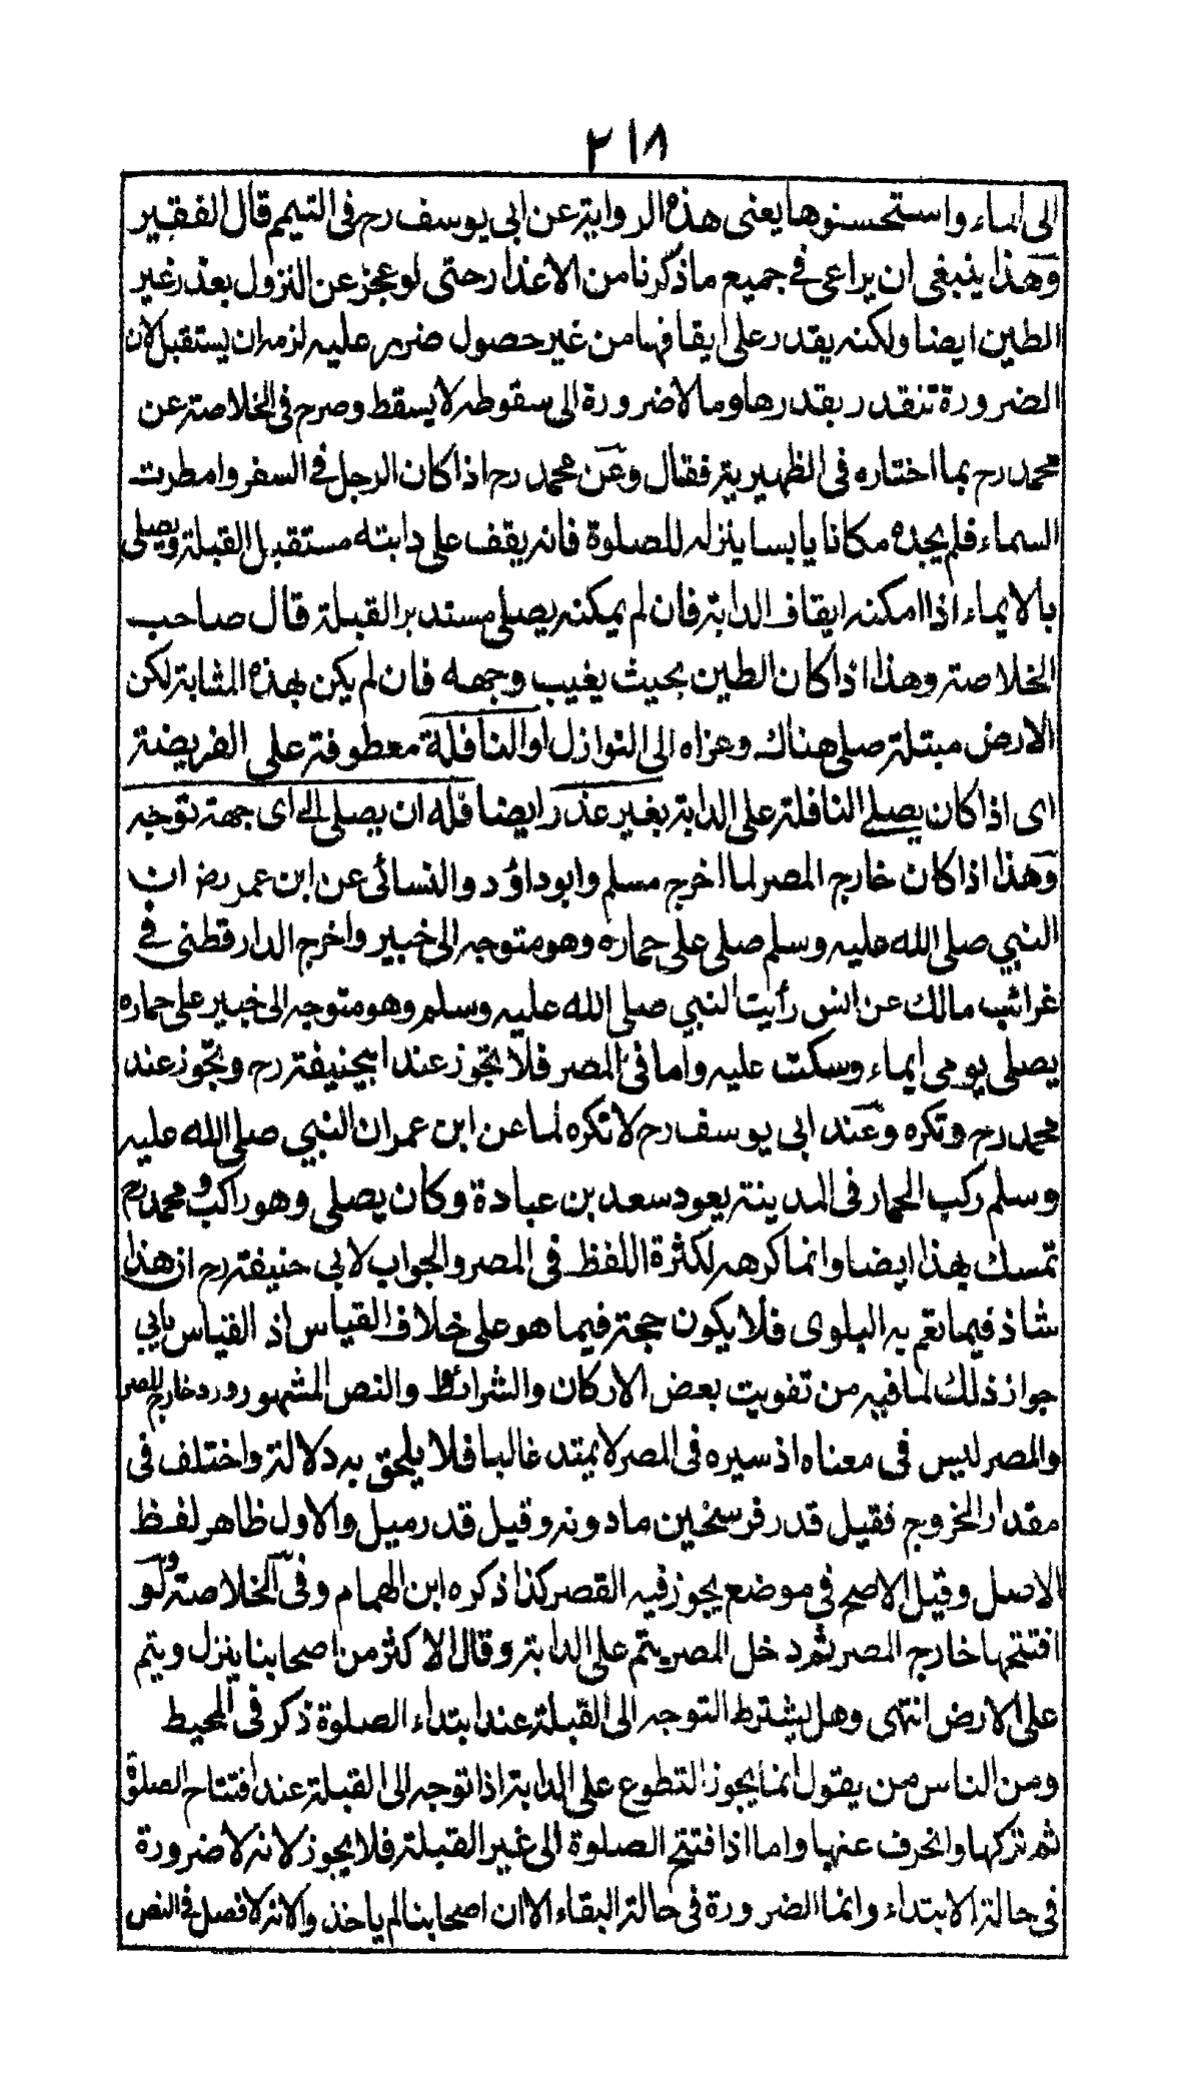 ٢١٨
الى الماء واستحسنوها يعنى هذه الرواية عن ابى يوسف رح فى التيمم قال الفقير
وهذا ينبغى ان يراعى فى جميع ما ذكرنا من الاعذار حتى لو عجز عن النزول بعذر غير
الطين ايضا ولكنه يقدر على ايقافها من غير حصول ضرر عليه لزمه ان يستقبل لان
الضرورة تتقدر بقدرها وما لا ضرورة الى سقوطه لا يسقط وصرح فى الخلاصة عن
محمد رح بما اختاره فى الظهيرية فقال وعن محمد رح اذا كان الرجل فى السفر وامطرت
السماء فلم يجده مكانا يابسا ينزله للصلوة فانه يقف على دابته مستقبل القبلة ويصلى
بالايماء اذا امكنه ايقاف الدابة فان لم يمكنه يصلى مستدبر القبلة قال صاحب
الخلاصة وهذا اذا كان الطين بحيث يغيب وجهه فان لم يكن بهذه المثابة لكن
الارض مبتلة صلى هناك وعزاه الى النوازل او النافلة معطوفة على الفريضة
اى اذا كان يصلى النافلة على الدابة بغير عذر ايضا فله ان يصلى الى اى جهة توجه
وهذا اذا كان خارج المصر لما اخرج مسلم وابو داؤد والنسائى عن ابن عمر رض ان
النبي صلى الله عليه وسلم صلى على حماره وهو متوجه الى خيبر واخرج الدارقطنى فى
غرائب مالك عن انس رأيت النبي صلى الله عليه وسلم وهو متوجه الى خيبر على حماره
يصلى يومى ايماء وسكت عليه واما فى المصر فلا تجوز عند ابيحنيفة رح وتجوز عند
محمد رح وتكره وعند ابى يوسف رح لا تكره لما عن ابن عمر ان النبي صلى الله عليه
وسلم ركب الحمار فى المدينة يعود سعد بن عبادة وكان يصلى وهو راكب و محمد رح
تمسك بهذا ايضا وانما كرهه لكثرة اللفظ فى المصر والجواب لابى حنيفة رح ان هذا
شاذ فيما تعم به البلوى فلا يكون حجة فيما هو على خلاف القياس اذ القياس يابى
جواز ذلك لما فيه من تفويت بعض الاركان والشرائط والنص المشهور ورد خارج المصر
والمصر ليس فى معناه اذ سيره فى المصر لا يمتد غالبا فلا يلحق به دلالة واختلف فى
مقدار الخروج فقيل قدر فرسخين ما دونه وقيل قدر ميل والاول ظاهر لفظ
الاصل وقيل الاصح فى موضع يجوز فيه القصر كذا ذكره ابن الهمام وفى الخلاصة ولو
افتتحها خارج المصر ثم دخل المصر يتم على الدابة وقال الاكثر من اصحابنا ينزل ويتم
على الارض انتهى وهل يشترط التوجه الى القبلة عند ابتداء الصلوة ذكر فى المحيط
ومن الناس من يقول انما يجوز التطوع على الدابة اذا توجه الى القبلة عند افتتاح الصلوة
ثم تركها وانحرف عنها واما اذا افتتح الصلوة الى غير القبلة فلا يجوز لانه لا ضرورة
فى حالة الابتداء وانما الضرورة فى حالة البقاء الا ان اصحابنا لم ياخذ والانه لا فصل فى النص